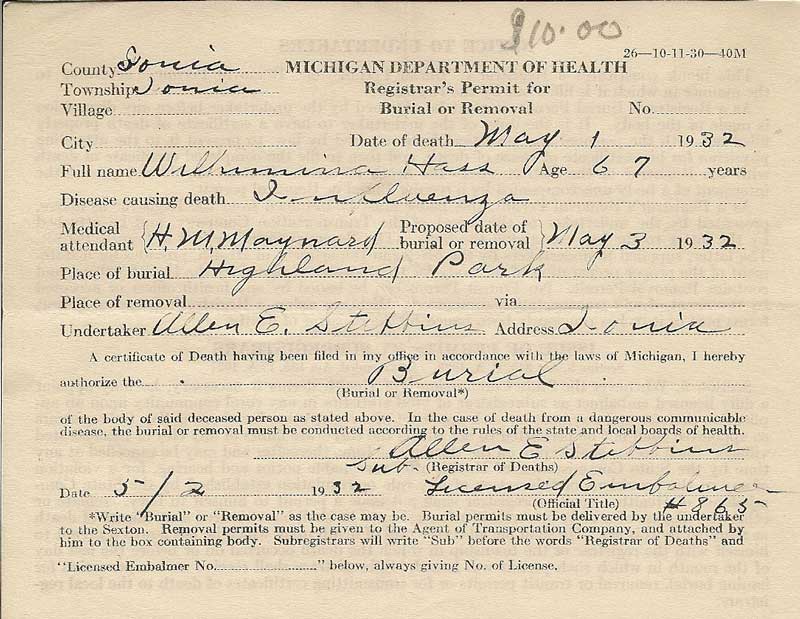 $10.00
26—10-11-30—40M
County Ionia MICHIGAN DEPARTMENT OF HEALTH
Township Ionia Registrar's Permit for
Village Burial or Removal No.
City Date of death May 1 1932
Full name Wilhumina Hass Age 67 years
Disease causing death Influenza
Medical attendant H. M. Maynard Proposed date of burial or removal May 3 1932
Place of burial Highland Park
Place of removal via
Undertaker Allen E. Stebbins Address Ionia
A certificate of Death having been filed in my office in accordance with the laws of Michigan, I hereby
authorize the Burial
(Burial or Removal*)
of the body of said deceased person as stated above. In the case of death from a dangerous communicable
disease, the burial or removal must be conducted according to the rules of the state and local boards of health.
Allen E Stebbins
Sub- (Registrar of Deaths)
Date 5/2 1932 Licensed Embalmer
(Official Title) #865
*Write "Burial" or "Removal" as the case may be. Burial permits must be delivered by the undertaker
to the Sexton. Removal permits must be given to the Agent of Transportation Company, and attached by
him to the box containing body. Subregistrars will write "Sub" before the words "Registrar of Deaths" and
"Licensed Embalmer No. " below, always giving No. of License.